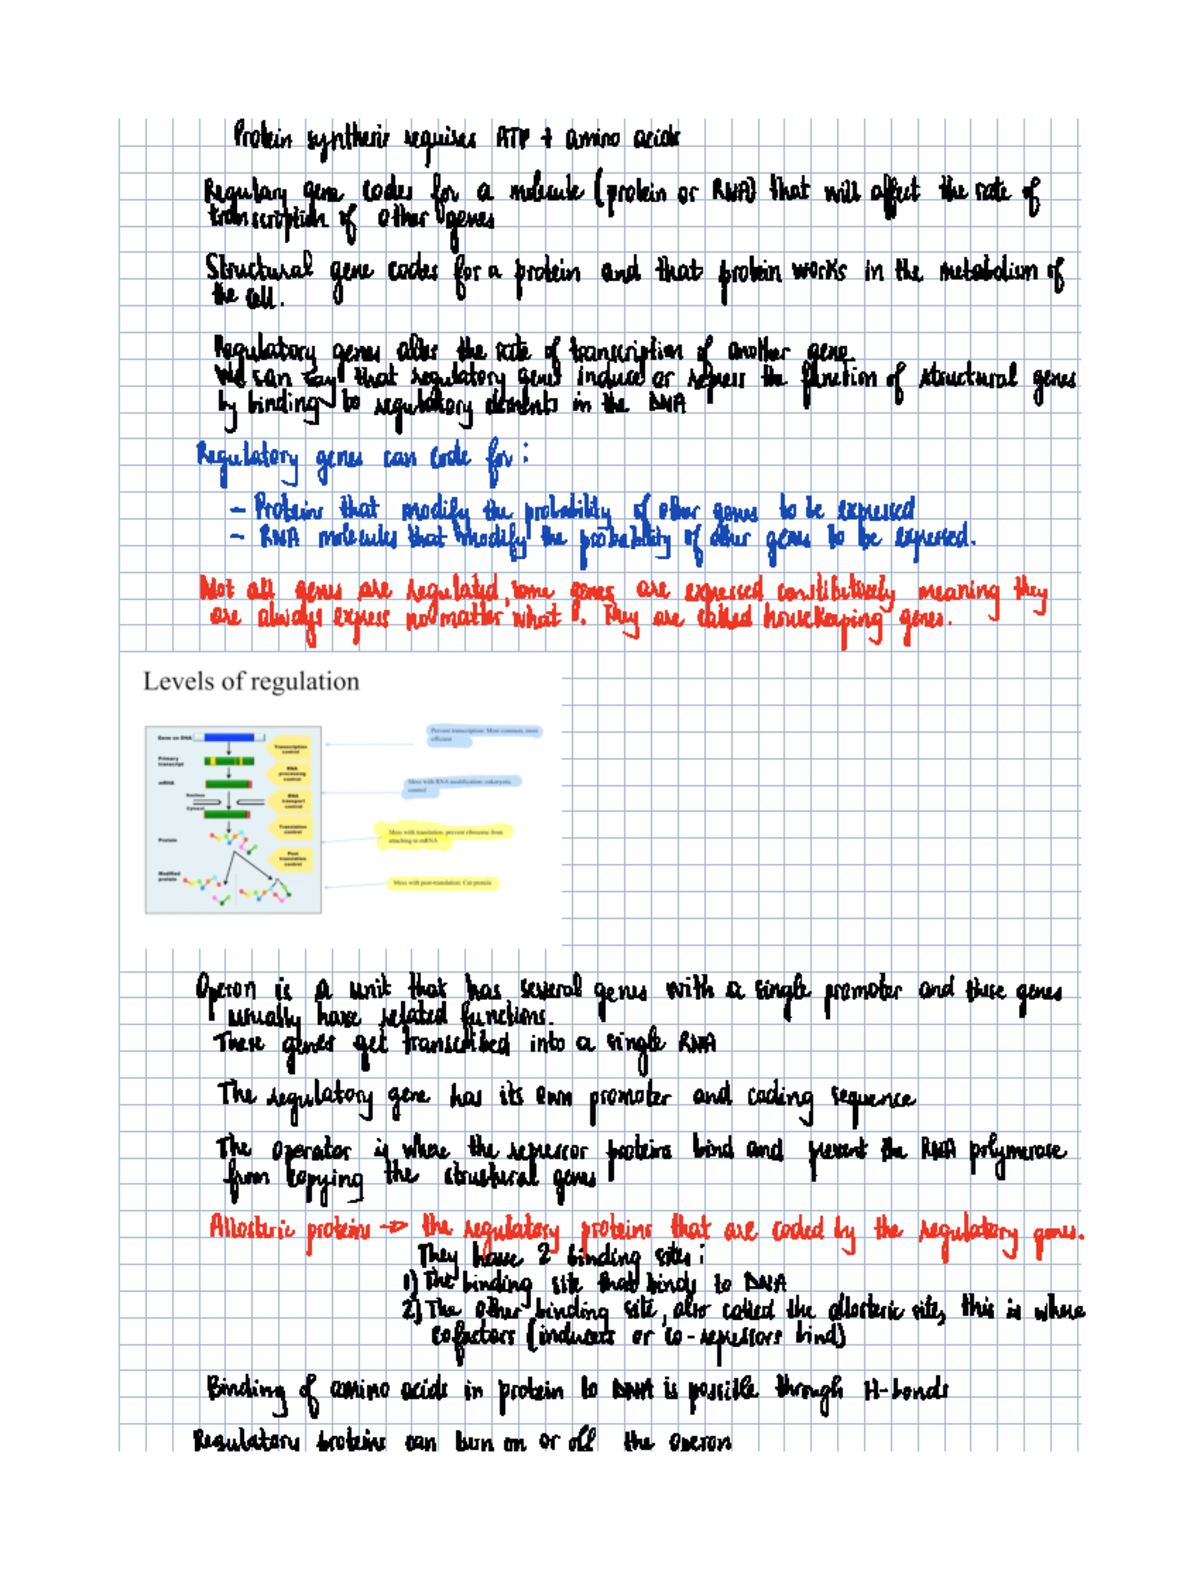 Protein synthesis requires ATP + amino acids
Regulary gene codes for a molecule (protein or RNA) that will affect the rate of
transcription of other genes
Structural gene codes for a protein and that protein works in the metabolism of
the cell.
Regulatory genes alter the rate of transcription of another gene.
We can say that regulatory genes induce or repress the function of structural genes
by binding to regulatory elements in the DNA
Regulatory genes can code for :
- Proteins that modify the probability of other genes to be expressed
- RNA molecules that modify the probability of other genes to be expressed.
Not all genes are regulated, some genes are expressed constitutively meaning they
are always express no matter what. They are called housekeeping genes.
Levels of regulation
Gene on DNA
Transcription
control
Prevent transcription: Most common, most
efficient
Primary
transcript
RNA
processing
control
mRNA
Mess with RNA modification: eukaryotic
control
Nucleus
Cytosol
RNA
transport
control
Translation
control
Mess with translation: prevent ribosome from
attaching to mRNA
Protein
Post
translation
control
Modified
protein
Mess with post-translation: Cut protein
Operon is a unit that has several genes with a single promoter and these genes
usually have related functions.
These genes get transcribed into a single RNA
The regulatory gene has its own promoter and coding sequence
The operator is where the repressor proteins bind and prevent the RNA polymerase
from copying the structural genes
Allosteric proteins -> the regulatory proteins that are coded by the regulatory genes.
They have 2 binding sites :
1) The binding site that binds to DNA
2) The other binding site, also called the allosteric site, this is where
cofactors (inducers or co-repressors bind)
Binding of amino acids in protein to DNA is possible through H-bonds
Regulatory proteins can turn on or off the operon